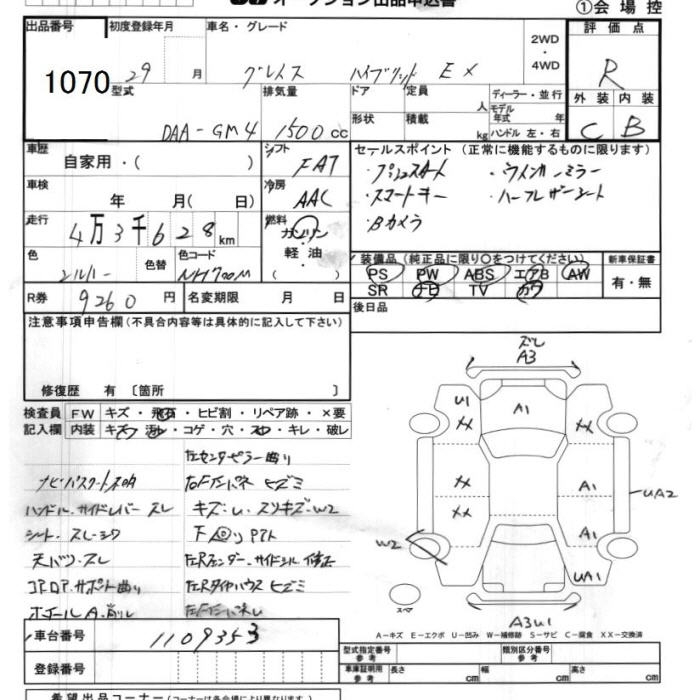 オークション出品申込書
①会場控
出品番号 初度登録年月 車名・グレード 評価点
1070 29 月 グレイス ハイブリット EX 2WD・4WD R
型式 排気量 ドア 定員 人 ディーラー・並行 外装 内装
DAA-GM4 1500cc 形状 積載 kg モデル年式 年 ハンドル 左・右 C B
車歴 自家用・( ) シフト FAT セールスポイント (正常に機能するものに限ります)
・プッシュスタート ・ウインカーミラー
車検 年 月( 日) 冷房 AAC ・スマートキー ・ハーフレザーシート
走行 4万3千628km 燃料 ガソリン 軽油 ( ) ・Bカメラ
色 シルバー 色替 色コード NH700M 装備品 (純正品に限り○をつけてください) 新車保証書
PS PW ABS エアB AW 有・無
SR ナビ TV カワ
R券 9260円 名変期限 月 日 後日品
注意事項申告欄 (不具合内容等は具体的に記入して下さい)
修復歴 有 〔箇所 〕
検査員 FW キズ・飛石・ヒビ割・リペア跡・×要
記入欄 内装 キズ・汚・コゲ・穴・スレ・キレ・破レ
左センターピラー曲り
ハンドル・サイドレバースレ キズ・U・スリキズ・W2
天バリ・スレ
左Rタイヤハウスヒズミ
車台番号 1109353
登録番号
ズレ
A3
U1 A1
XX XX
XX A1
XX UA2
W2 A1
UA1
スペア
A3U1
A−キズ E−エクボ U−凹み W−補修跡 S−サビ C−腐食 XX−交換済
型式指定番号 参考 類別区分番号 参考
車庫証明用 参考 長さ cm 幅 cm 高さ cm
希望出品コーナー